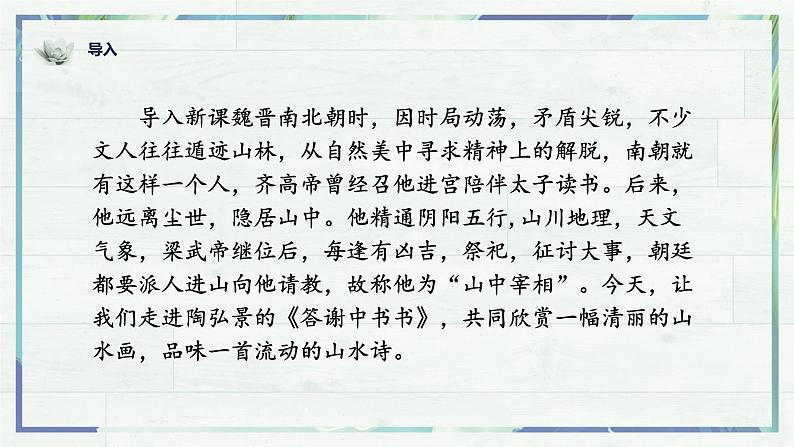 导入
导入新课魏晋南北朝时，因时局动荡，矛盾尖锐，不少
文人往往遁迹山林，从自然美中寻求精神上的解脱，南朝就
有这样一个人，齐高帝曾经召他进宫陪伴太子读书。后来，
他远离尘世，隐居山中。他精通阴阳五行,山川地理，天文
气象，梁武帝继位后，每逢有凶吉，祭祀，征讨大事，朝廷
都要派人进山向他请教，故称他为“山中宰相”。今天，让
我们走进陶弘景的《答谢中书书》，共同欣赏一幅清丽的山
水画，品味一首流动的山水诗。